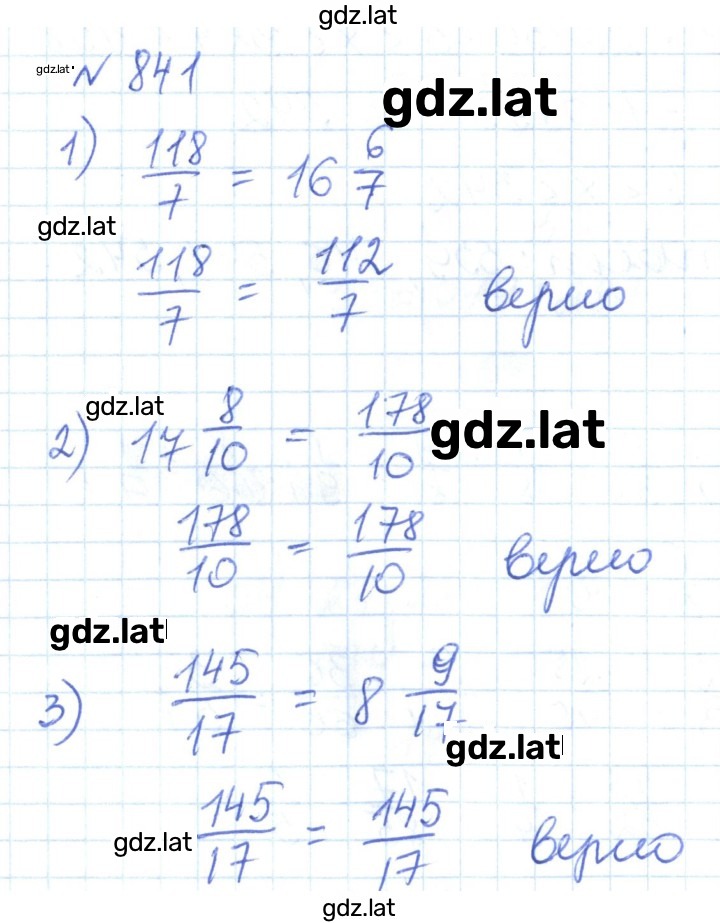 gdz.lat
gdz.lat
№ 841
gdz.lat
1) 118/7 = 16 6/7
gdz.lat
118/7 = 112/7 верно
gdz.lat
2) 17 8/10 = 178/10
gdz.lat
178/10 = 178/10 верно
gdz.lat
3) 145/17 = 8 9/17
gdz.lat
145/17 = 145/17 верно
gdz.lat
gdz.lat